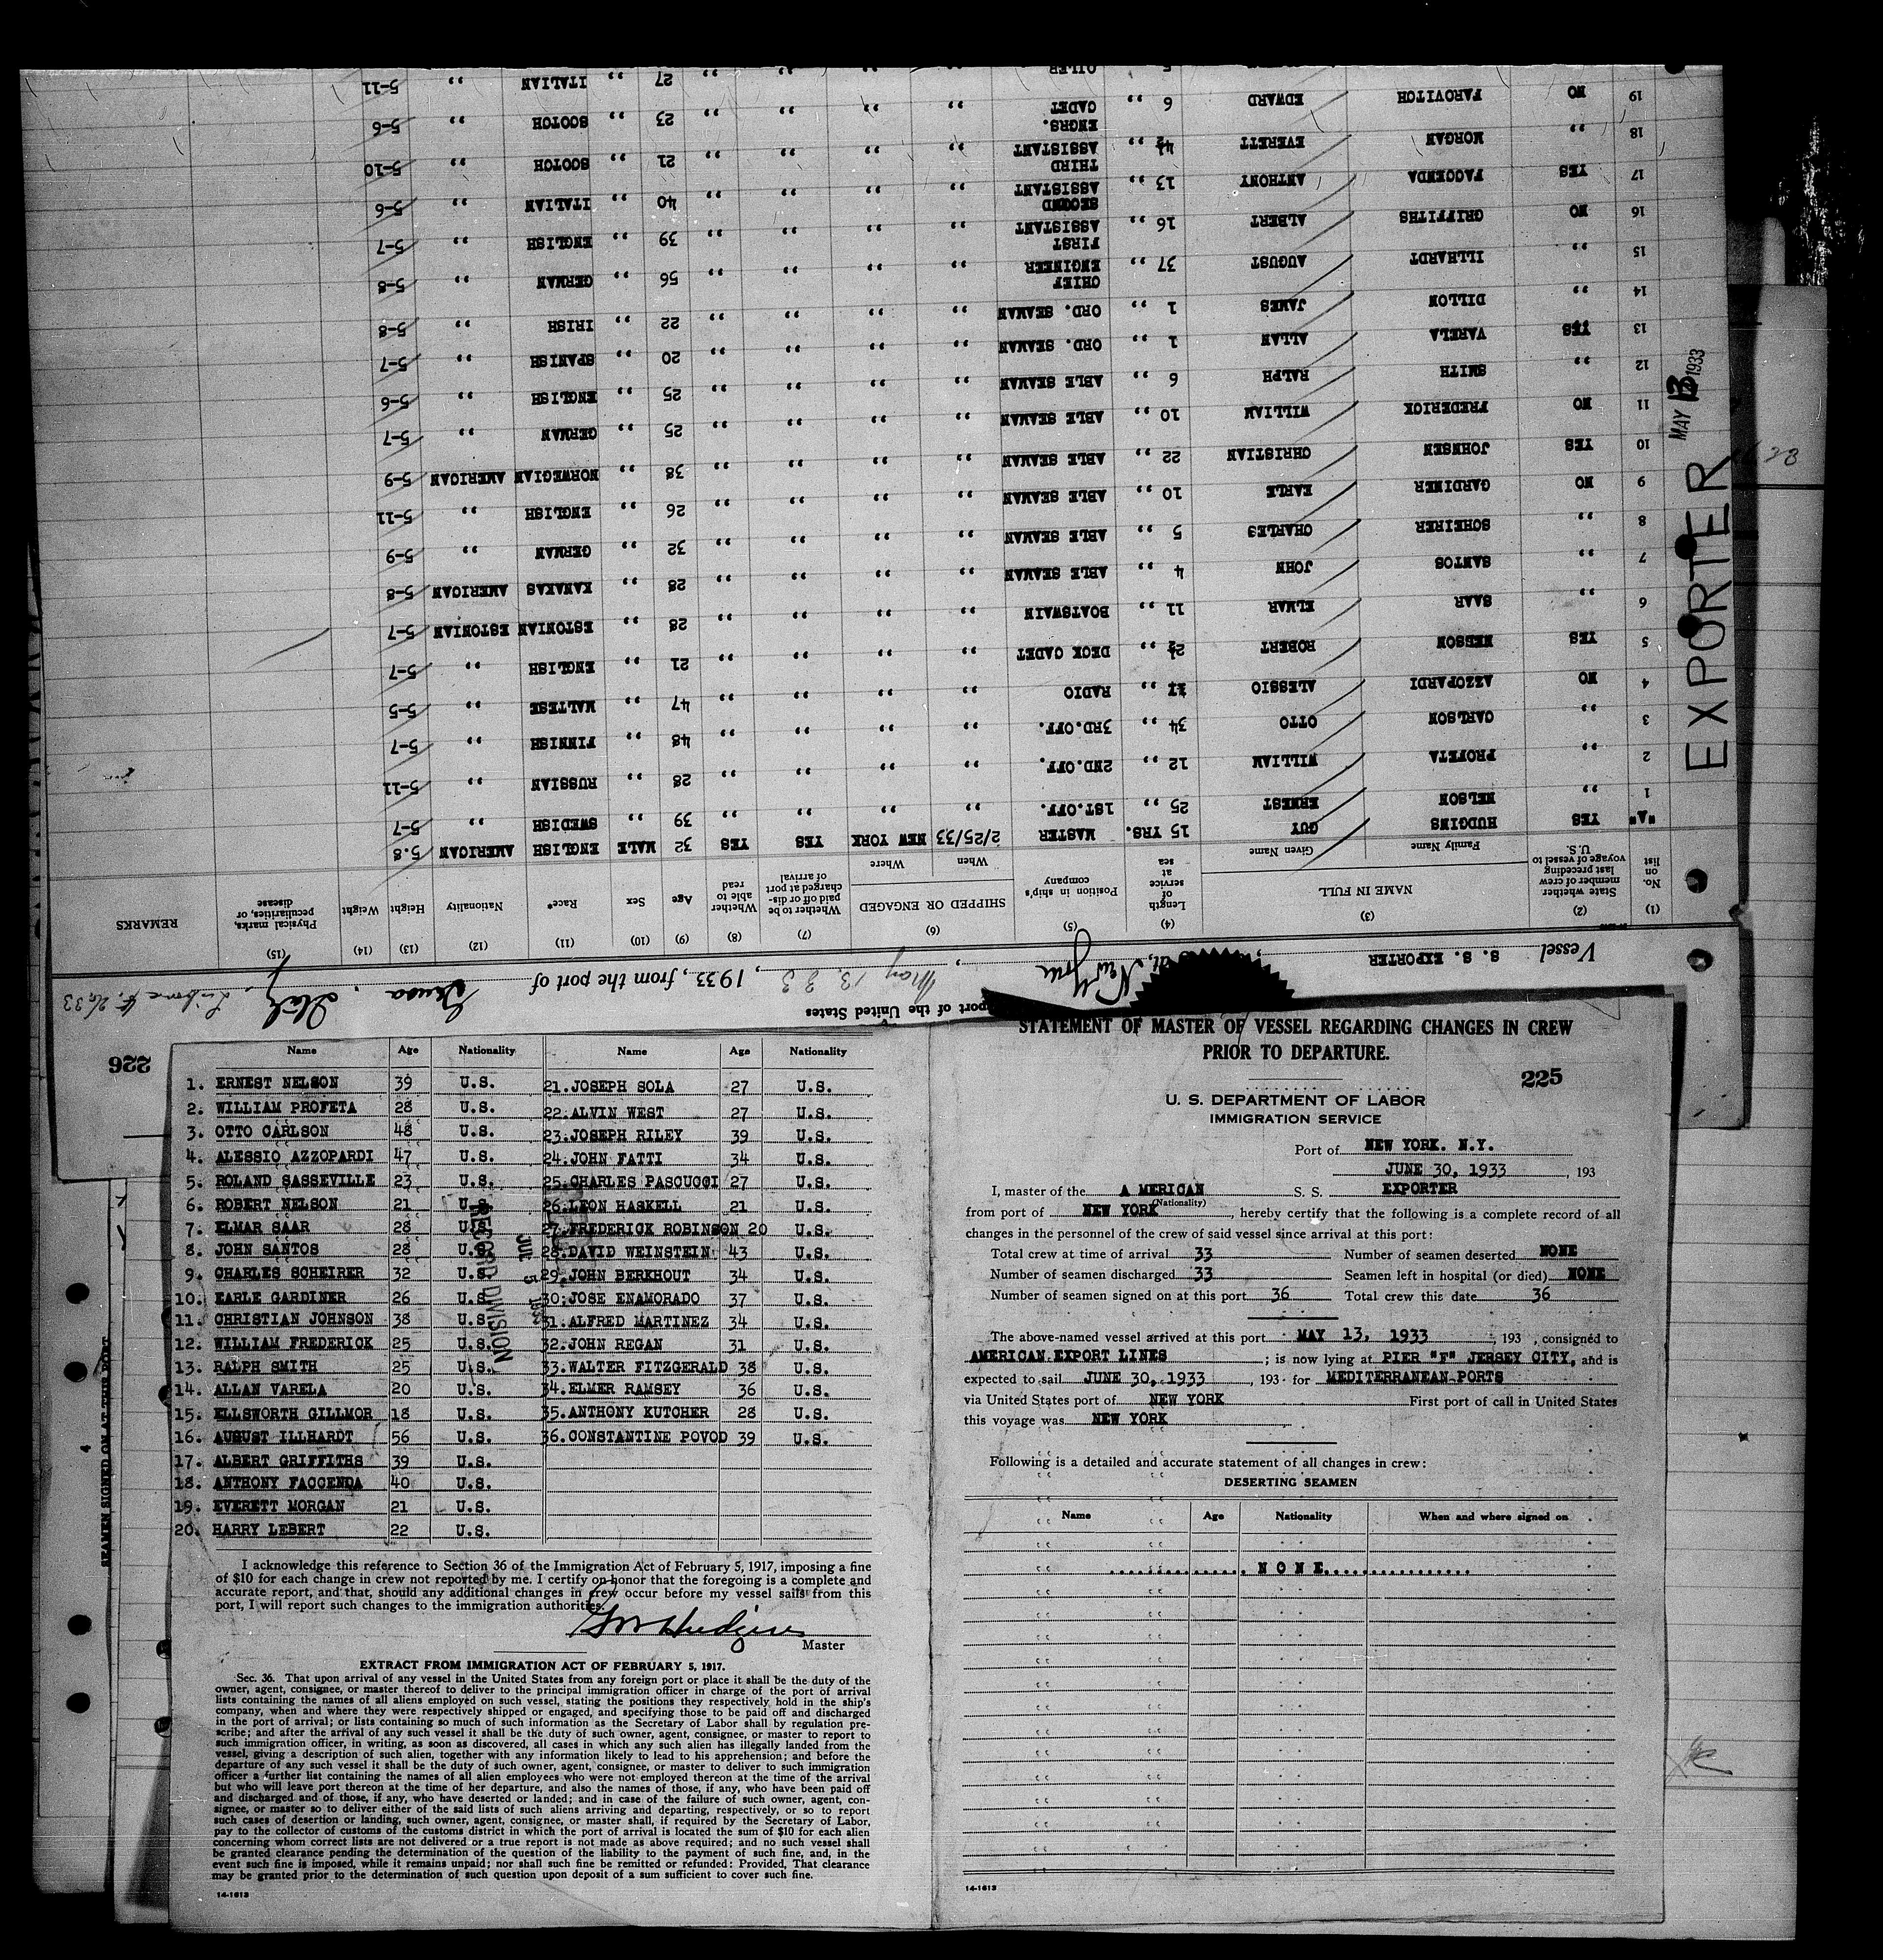 Vessel S. S. EXPORTER, at New York, May 13, 33, 1933, from the port of Genoa, Italy.
port of the United States
226
(1) No. on list
(2) State whether member of crew last preceding voyage of vessel to U.S.
(3) NAME IN FULL Family Name Given Name
(4) Length of service at sea
(5) Position in ship's company
(6) SHIPPED OR ENGAGED When Where
(7) Whether to be paid off or discharged at port of arrival
(8) Whether able to read
(9) Age
(10) Sex
(11) Race*
(12) Nationality
(13) Height
(14) Weight
(15) Physical marks, peculiarities, or disease
REMARKS
"A" YES HUDGINS GUY 15 YRS. MASTER 2/25/33 NEW YORK YES YES 32 MALE ENGLISH AMERICAN 5.8
1 ,, NELSON ERNEST 25 ,, 1ST.OFF. ,, ,, ,, ,, 39 ,, SWEDISH ,, 5-7
2 ,, PROFETA WILLIAM 12 ,, 2ND.OFF. ,, ,, ,, ,, 28 ,, RUSSIAN ,, 5-11
3 ,, CARLSON OTTO 34 ,, 3RD.OFF. ,, ,, ,, ,, 48 ,, FINNISH ,, 5-7
4 NO AZZOPARDI ALESSIO ,, RADIO ,, ,, ,, ,, 47 ,, MALTESE ,, 5-5
5 YES NELSON ROBERT 2½ ,, DECK CADET ,, ,, ,, ,, 21 ,, ENGLISH ,, 5-7
6 ,, SAAR ELMAR 11 ,, BOATSWAIN ,, ,, ,, ,, 28 ,, ESTONIAN ESTONIAN 5-7
7 ,, SANTOS JOHN 4 ,, ABLE SEAMAN ,, ,, ,, ,, 28 ,, KANAKAS AMERICAN 5-8
8 ,, SCHEIRER CHARLES 5 ,, ABLE SEAMAN ,, ,, ,, ,, 32 ,, GERMAN ,, 5-9
9 NO GARDINER EARLE 10 ,, ABLE SEAMAN ,, ,, ,, ,, 26 ,, ENGLISH ,, 5-11
10 YES JOHNSEN CHRISTIAN 22 ,, ABLE SEAMAN ,, ,, ,, ,, 38 ,, NORWEGIAN AMERICAN 5-9
11 NO FREDERICK WILLIAM 10 ,, ABLE SEAMAN ,, ,, ,, ,, 25 ,, GERMAN ,, 5-7
12 ,, SMITH RALPH 6 ,, ABLE SEAMAN ,, ,, ,, ,, 25 ,, ENGLISH ,, 5-6
13 YES VARELA ALLAN 1 ,, ORD. SEAMAN ,, ,, ,, ,, 20 ,, SPANISH ,, 5-7
14 ,, DILLON JAMES 1 ,, ORD. SEAMAN ,, ,, ,, ,, 22 ,, IRISH ,, 5-8
15 ,, ILLHARDT AUGUST 37 ,, CHIEF ENGINEER ,, ,, ,, ,, 56 ,, GERMAN ,, 5-8
16 NO GRIFFITHS ALBERT 16 ,, FIRST ASSISTANT ,, ,, ,, ,, 39 ,, ENGLISH ,, 5-7
17 YES FACCENDA ANTHONY 13 ,, SECOND ASSISTANT ,, ,, ,, ,, 40 ,, ITALIAN ,, 5-6
18 ,, MORGAN EVERETT 4½ ,, THIRD ASSISTANT ,, ,, ,, ,, 21 ,, SCOTCH ,, 5-10
19 NO FAROVITCH EDWARD 6 ,, ENGRS. CADET ,, ,, ,, ,, 23 ,, SCOTCH ,, 5-6
5 ,, OILER ,, ,, ,, ,, 27 ,, ITALIAN ,, 5-11
EXPORTER MAY 13 1933
SEAMEN SIGNED ON AT THIS PORT
4
Name Age Nationality Name Age Nationality
1. ERNEST NELSON 39 U.S. 21. JOSEPH SOLA 27 U.S.
2. WILLIAM PROFETA 28 U.S. 22. ALVIN WEST 27 U.S.
3. OTTO CARLSON 48 U.S. 23. JOSEPH RILEY 39 U.S.
4. ALESSIO AZZOPARDI 47 U.S. 24. JOHN FATTI 34 U.S.
5. ROLAND SASSEVILLE 23 U.S. 25. CHARLES PASCUCCI 27 U.S.
6. ROBERT NELSON 21 U.S. 26. LEON HASKELL 21 U.S.
7. ELMAR SAAR 28 U.S. 27. FREDERICK ROBINSON 20 U.S.
8. JOHN SANTOS 28 U.S. 28. DAVID WEINSTEIN 43 U.S.
9. CHARLES SCHEIRER 32 U.S. 29. JOHN BERKHOUT 34 U.S.
10. EARLE GARDINER 26 U.S. 30. JOSE ENAMORADO 37 U.S.
11. CHRISTIAN JOHNSON 38 U.S. 31. ALFRED MARTINEZ 34 U.S.
12. WILLIAM FREDERICK 25 U.S. 32. JOHN REGAN 31 U.S.
13. RALPH SMITH 25 U.S. 33. WALTER FITZGERALD 38 U.S.
14. ALLAN VARELA 20 U.S. 34. ELMER RAMSEY 36 U.S.
15. ELLSWORTH GILLMOR 18 U.S. 35. ANTHONY KUTCHER 28 U.S.
16. AUGUST ILLHARDT 56 U.S. 36. CONSTANTINE POVOD 39 U.S.
17. ALBERT GRIFFITHS 39 U.S.
18. ANTHONY FACCENDA 40 U.S.
19. EVERETT MORGAN 21 U.S.
20. HARRY LEBERT 22 U.S.
RECORD DIVISION
JUL 5 1933
I acknowledge this reference to Section 36 of the Immigration Act of February 5, 1917, imposing a fine
of $10 for each change in crew not reported by me. I certify on honor that the foregoing is a complete and
accurate report, and that, should any additional changes in crew occur before my vessel sails from this
port, I will report such changes to the immigration authorities.
GW Hudgins
Master
EXTRACT FROM IMMIGRATION ACT OF FEBRUARY 5, 1917.
Sec. 36. That upon arrival of any vessel in the United States from any foreign port or place it shall be the duty of the
owner, agent, consignee, or master thereof to deliver to the principal immigration officer in charge of the port of arrival
lists containing the names of all aliens employed on such vessel, stating the positions they respectively hold in the ship's
company, when and where they were respectively shipped or engaged, and specifying those to be paid off and discharged
in the port of arrival; or lists containing so much of such information as the Secretary of Labor shall by regulation pre-
scribe; and after the arrival of any such vessel it shall be the duty of such owner, agent, consignee, or master to report to
such immigration officer, in writing, as soon as discovered, all cases in which any such alien has illegally landed from the
vessel, giving a description of such alien, together with any information likely to lead to his apprehension; and before the
departure of any such vessel it shall be the duty of such owner, agent, consignee, or master to deliver to such immigration
officer a further list containing the names of all alien employees who were not employed thereon at the time of the arrival
but who will leave port thereon at the time of her departure, and also the names of those, if any, who have been paid off
and discharged and of those, if any, who have deserted or landed; and in case of the failure of such owner, agent, con-
signee, or master so to deliver either of the said lists of such aliens arriving and departing, respectively, or so to report
such cases of desertion or landing, such owner, agent, consignee, or master shall, if required by the Secretary of Labor,
pay to the collector of customs of the customs district in which the port of arrival is located the sum of $10 for each alien
concerning whom correct lists are not delivered or a true report is not made as above required; and no such vessel shall
be granted clearance pending the determination of the question of the liability to the payment of such fine, and, in the
event such fine is imposed, while it remains unpaid; nor shall such fine be remitted or refunded: Provided, That clearance
may be granted prior to the determination of such question upon deposit of a sum sufficient to cover such fine.
14-1613
STATEMENT OF MASTER OF VESSEL REGARDING CHANGES IN CREW
PRIOR TO DEPARTURE.
225
U. S. DEPARTMENT OF LABOR
IMMIGRATION SERVICE
Port of NEW YORK. N.Y.
JUNE 30, 1933, 193
I, master of the A MERICAN S. S. EXPORTER
(Nationality)
from port of NEW YORK, hereby certify that the following is a complete record of all
changes in the personnel of the crew of said vessel since arrival at this port:
Total crew at time of arrival 33 Number of seamen deserted NONE
Number of seamen discharged 33 Seamen left in hospital (or died) NONE
Number of seamen signed on at this port 36 Total crew this date 36
The above-named vessel arrived at this port MAY 13, 1933, 193 , consigned to
AMERICAN EXPORT LINES; is now lying at PIER "F" JERSEY CITY, and is
expected to sail JUNE 30, 1933, 193 for MEDITERRANEAN PORTS
via United States port of NEW YORK First port of call in United States
this voyage was NEW YORK
Following is a detailed and accurate statement of all changes in crew:
DESERTING SEAMEN
Name Age Nationality When and where signed on
NONE
14-1613